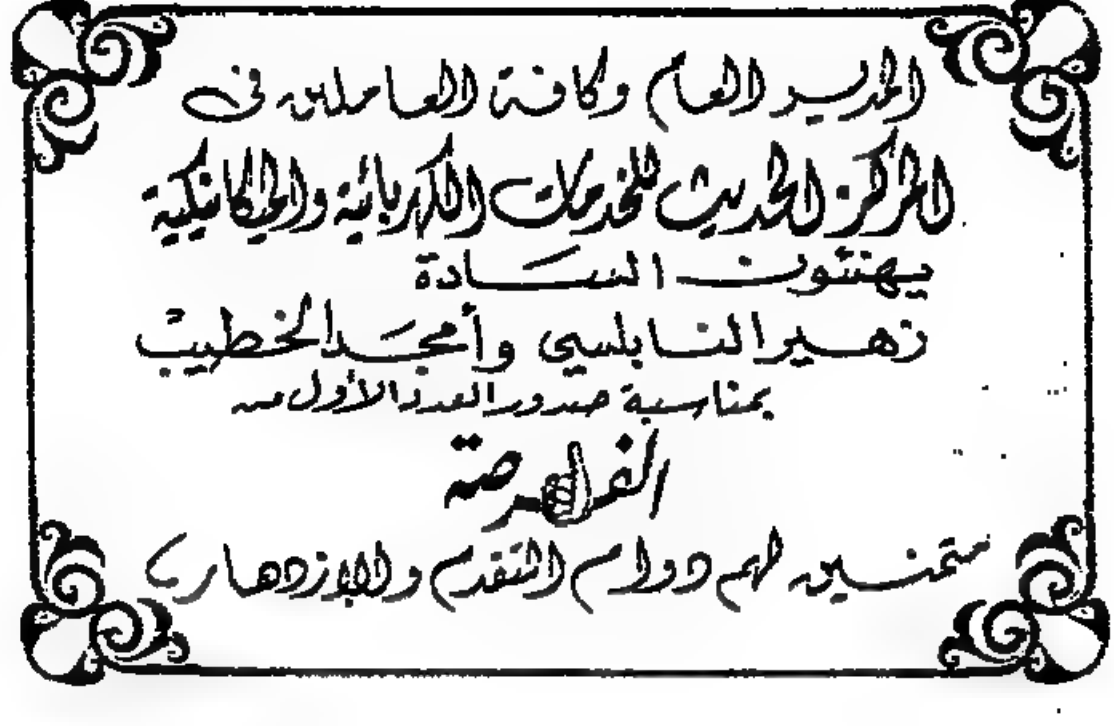 المدير العام وكافة العاملين في
المركز الحديث للخدمات الكهربائية والميكانيكية
يهنئون السادة
زهير النابلسي وأمجد الخطيب
بمناسبة صدور العدد الأول من
الفرصة
متمنين لهم دوام التقدم والازدهار